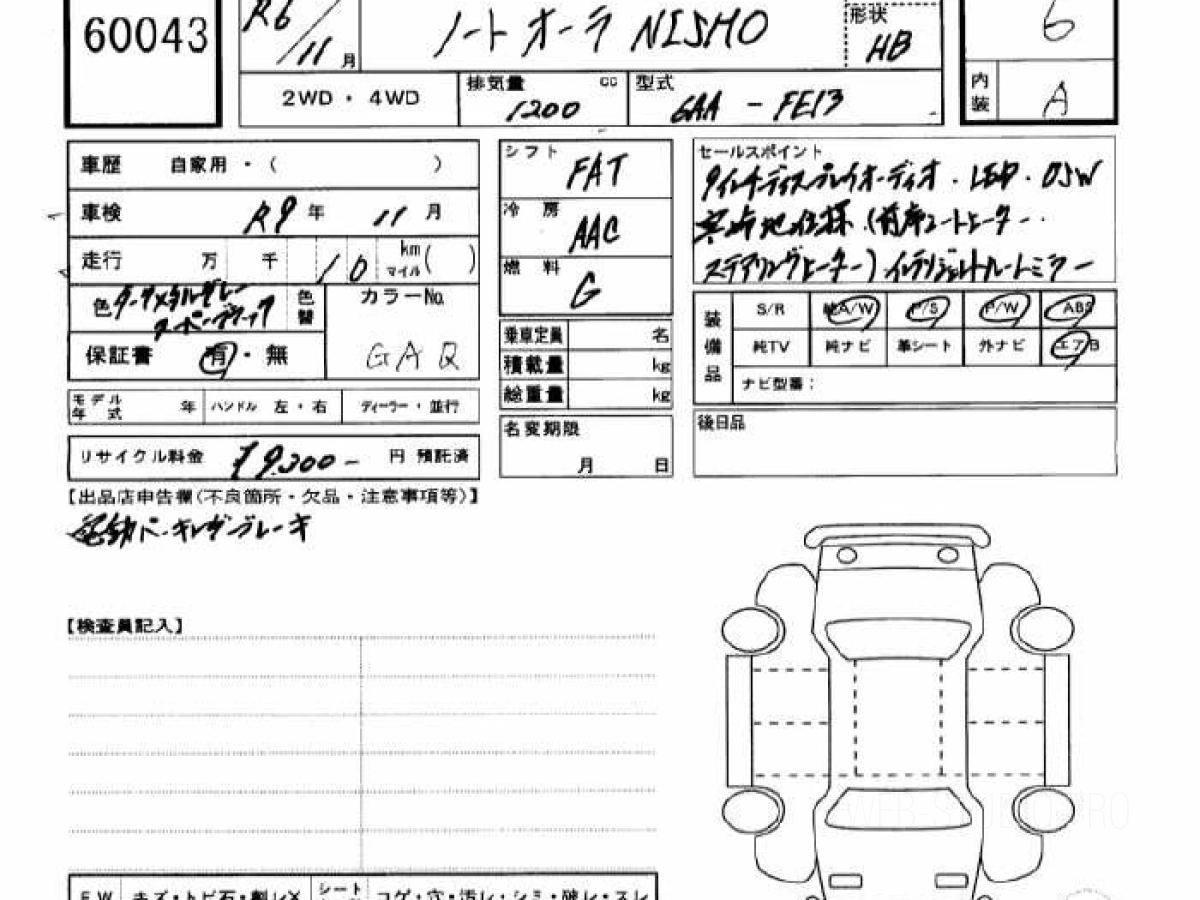 60043
R6/11月
ノートオーラ NISMO
形状
HB
6
2WD・4WD
排気量 cc
1200
型式
6AA-FE13
内装
A
車歴 自家用・( )
車検 R9年 11月
走行 万 千 10 km マイル( )
色 ダークメタルグレー
スーパーブラック
色替
カラーNo.
GAQ
保証書 有・無
シフト
FAT
冷房
AAC
燃料
G
乗車定員 名
積載量 kg
総重量 kg
名変期限
月 日
セールスポイント
9インチディスプレイオーディオ・LED・DSW
寒冷地仕様(前席シートヒーター・
ステアリングヒーター)インテリジェントルームミラー
装備品
S/R 純A/W P/S P/W ABS
純TV 純ナビ 革シート 外ナビ エアB
ナビ型番:
後日品
モデル年式 年 ハンドル 左・右 ディーラー・並行
リサイクル料金 ¥9,300- 円 預託済
【出品店申告欄(不良箇所・欠品・注意事項等)】
電動パーキングブレーキ
【検査員記入】
WEB-STUDIO.PRO
FW キズ・トビ石・割レX シート コゲ・穴・汚レ・シミ・破レ・スレ